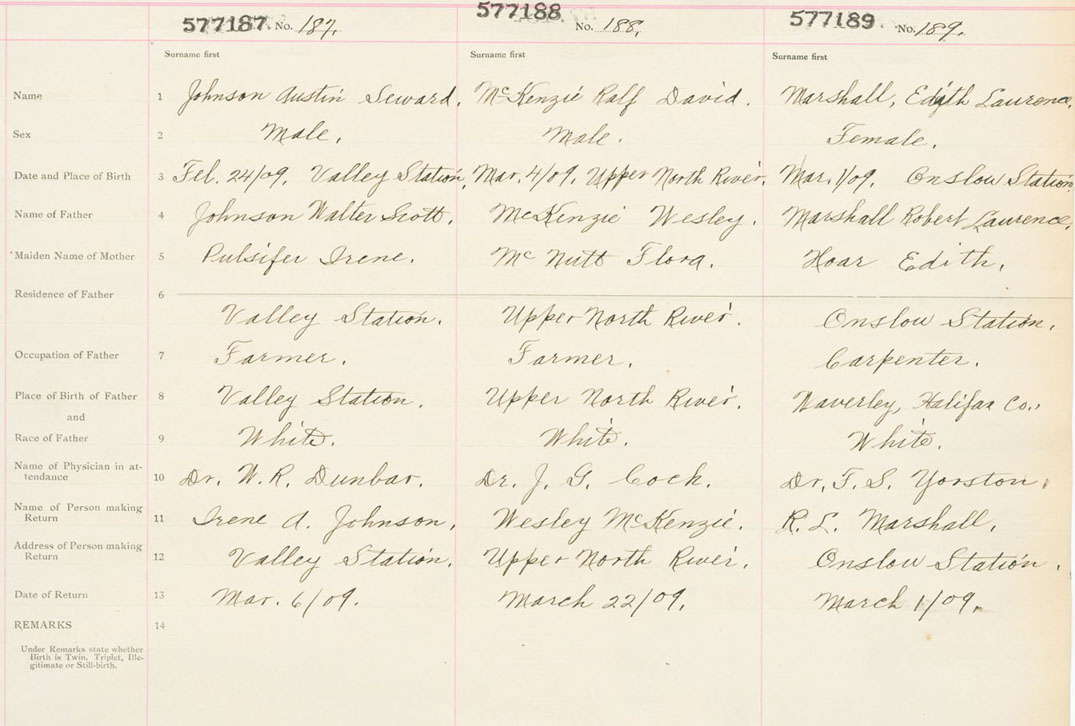 577187 No. 187. 577188 No. 188. 577189 No. 189.
Surname first Surname first Surname first
Name 1 Johnson Austin Seward. McKenzie Ralf David. Marshall, Edyth Laurence.
Sex 2 Male. Male. Female.
Date and Place of Birth 3 Feb. 24/09. Valley Station. Mar. 4/09. Upper North River. Mar. 1/09. Onslow Station.
Name of Father 4 Johnson Walter Scott. McKenzie Wesley. Marshall Robert Laurence.
Maiden Name of Mother 5 Pulsifer Irene. McNutt Flora. Hoar Edith.
Residence of Father 6
Valley Station. Upper North River. Onslow Station.
Occupation of Father 7 Farmer. Farmer. Carpenter.
Place of Birth of Father 8 Valley Station. Upper North River. Waverley, Halifax Co.,
and
Race of Father 9 White. White. White.
Name of Physician in at-
tendance 10 Dr. W. R. Dunbar. Dr. J. G. Cock. Dr. F. S. Yorston.
Name of Person making
Return 11 Irene A. Johnson. Wesley McKenzie. R. L. Marshall.
Address of Person making
Return 12 Valley Station. Upper North River. Onslow Station.
Date of Return 13 Mar. 6/09. March 22/09. March 1/09.
REMARKS 14
Under Remarks state whether
Birth is Twin, Triplet, Ille-
gitimate or Still-birth.